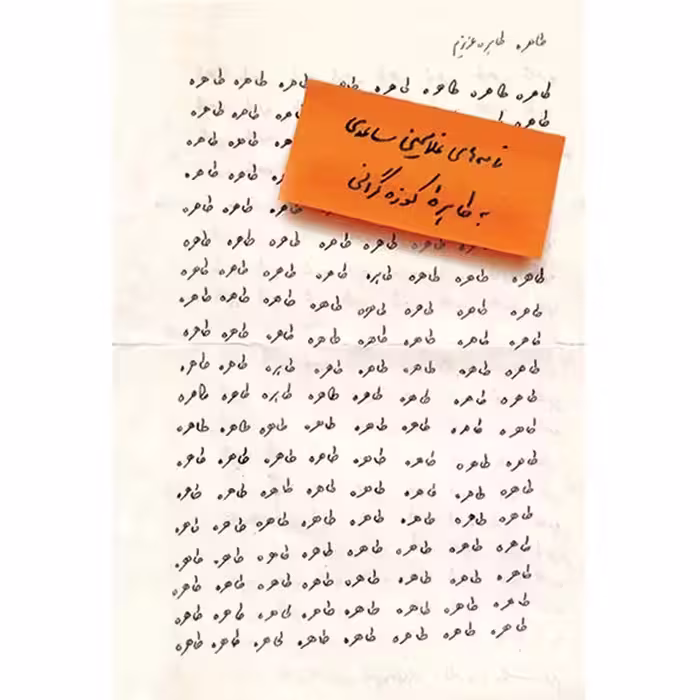 طاهره طاهره عزیزم
طاهره طاهره طاهره طاهره طاهره طاهره طاهره طاهره
طاهره طاهره طاهره
نامه‌های غلامحسین ساعدی
به طاهرهٔ کوزه‌گرانی
طاهره طاهره
طاهره طاهره
طاهره طاهره
طاهره طاهره طاهره طاهره طاهره طاهره
طاهره طاهره طاهره طاهره طاهره طاهره طاهره طاهره
طاهره طاهره طاهره طاهره طاهره طاهره طاهره طاهره
طاهره طاهره طاهره طاهره طاهره طاهره طاهره طاهره
طاهره طاهره طاهره طاهره طاهره طاهره طاهره طاهره
طاهره طاهره طاهره طاهره طاهره طاهره طاهره طاهره
طاهره طاهره طاهره طاهره طاهره طاهره طاهره طاهره
طاهره طاهره طاهره طاهره طاهره طاهره طاهره طاهره
طاهره طاهره طاهره طاهره طاهره طاهره طاهره طاهره
طاهره طاهره طاهره طاهره طاهره طاهره طاهره طاهره
طاهره طاهره طاهره طاهره طاهره طاهره طاهره طاهره
طاهره طاهره طاهره طاهره طاهره طاهره طاهره طاهره
طاهره طاهره طاهره طاهره طاهره طاهره طاهره طاهره
طاهره طاهره طاهره طاهره طاهره طاهره طاهره طاهره